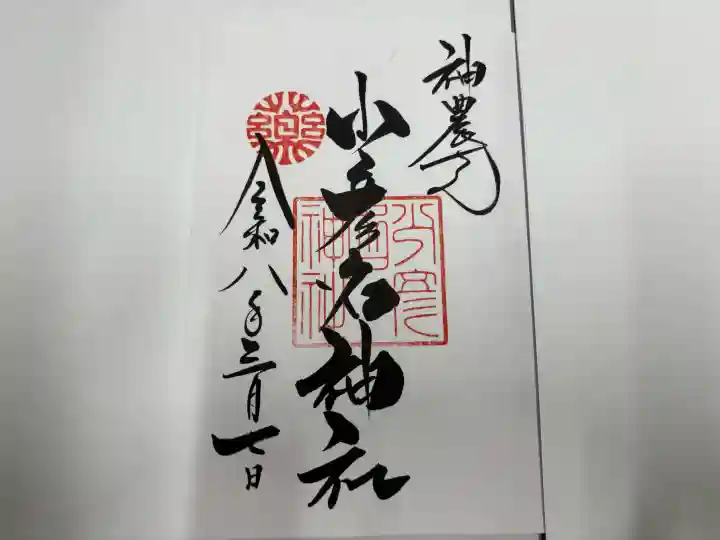 神農さん
少彦名神社
少彦名神社
薬
令和八年三月七日